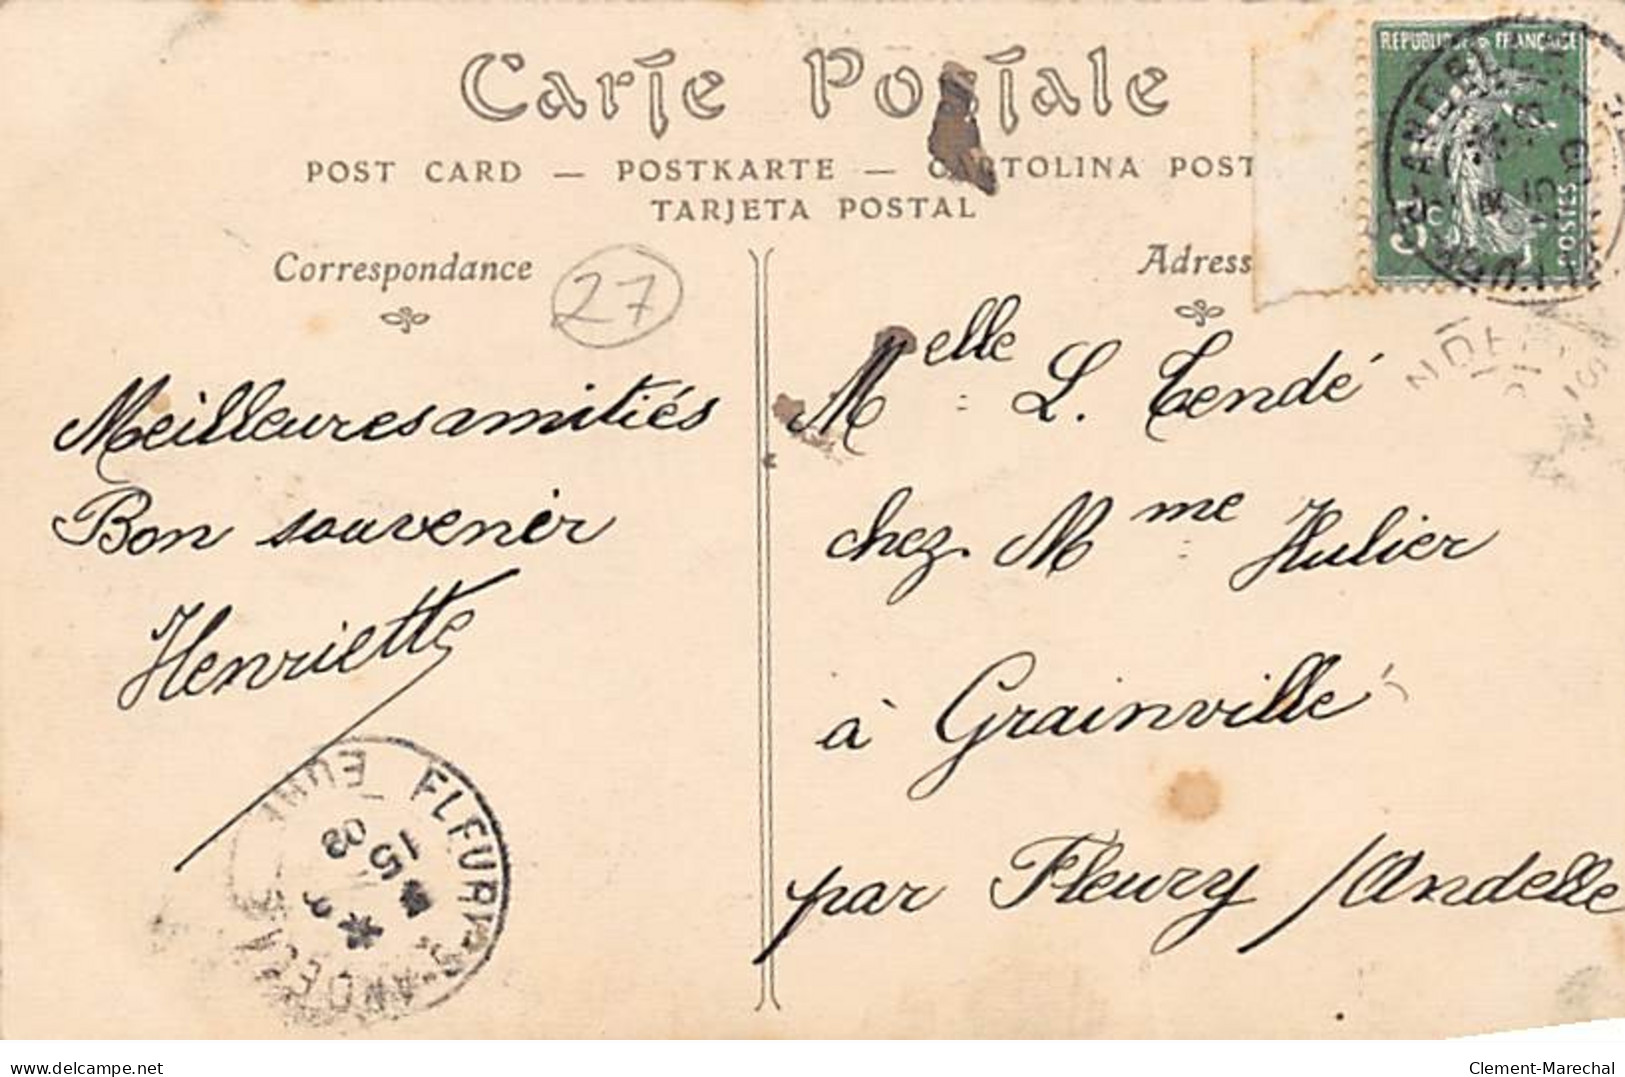 Carte Postale
POST CARD — POSTKARTE — CARTOLINA POST
TARJETA POSTAL
Correspondance
27
Meilleures amitiés
Bon souvenir
Henriette
FLEURY-S-ANDELLE
EURE
15
08
Adress
REPUBLIQUE FRANÇAISE
5c
POSTES
Melle L. Tendé
chez Mme Hulier
à Grainville
par Fleury s/Andelle
www.delcampe.net
Clement-Marechal